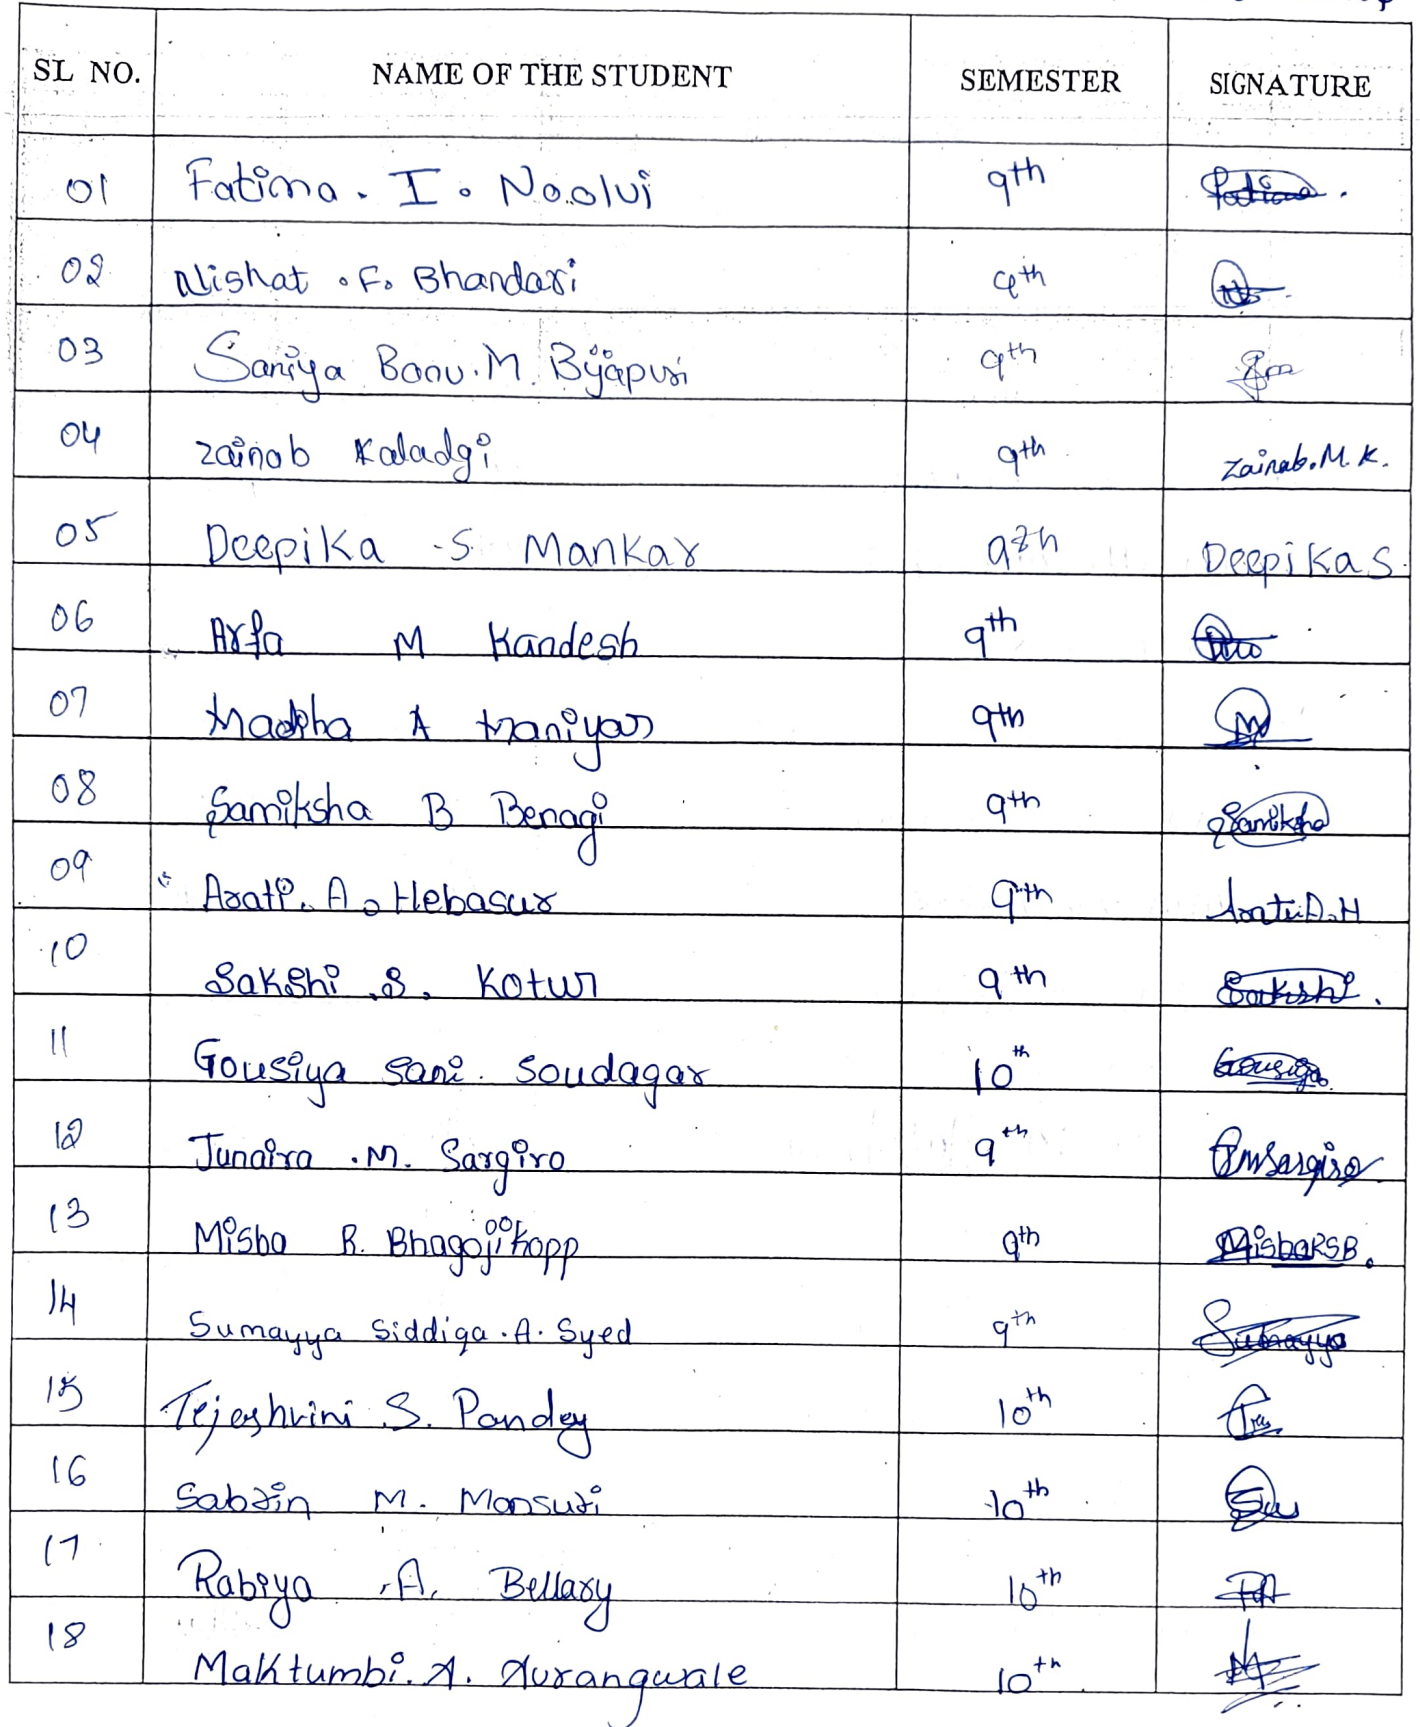 SL NO. NAME OF THE STUDENT SEMESTER SIGNATURE
01 Fatima. I. Noolvi 9th Fatima.
02 Nishat .F. Bhandari 9th
03 Saniya Banu.M. Bijapuri 9th
04 Zainab Kaladgi 9th Zainab.M.K.
05 Deepika .S. Mankar 9th Deepika S.
06 Arfa M Kandesh 9th
07 A Maniyar 9th
08 Samiksha B Benagi 9th Samiksha
09 Arati. A. Hebasur 9th Arati.A.H
10 Sakshi .S. Kotur 9th Sakshi.
11 Gousiya Sani. Soudagar 10th Gousiya
12 Junaira .M. Sargiro 9th Sargiro
13 Misba R. Bhagojikopp 9th Misba RSB.
14 Sumayya Siddiqa.A. Syed 9th Sumayya
15 Tejashvini S. Pandey 10th
16 Sabrin M. Mansuri 10th
17 Rabiya .A. Bellary 10th
18 Maktumbi. A. Aurangwale 10th